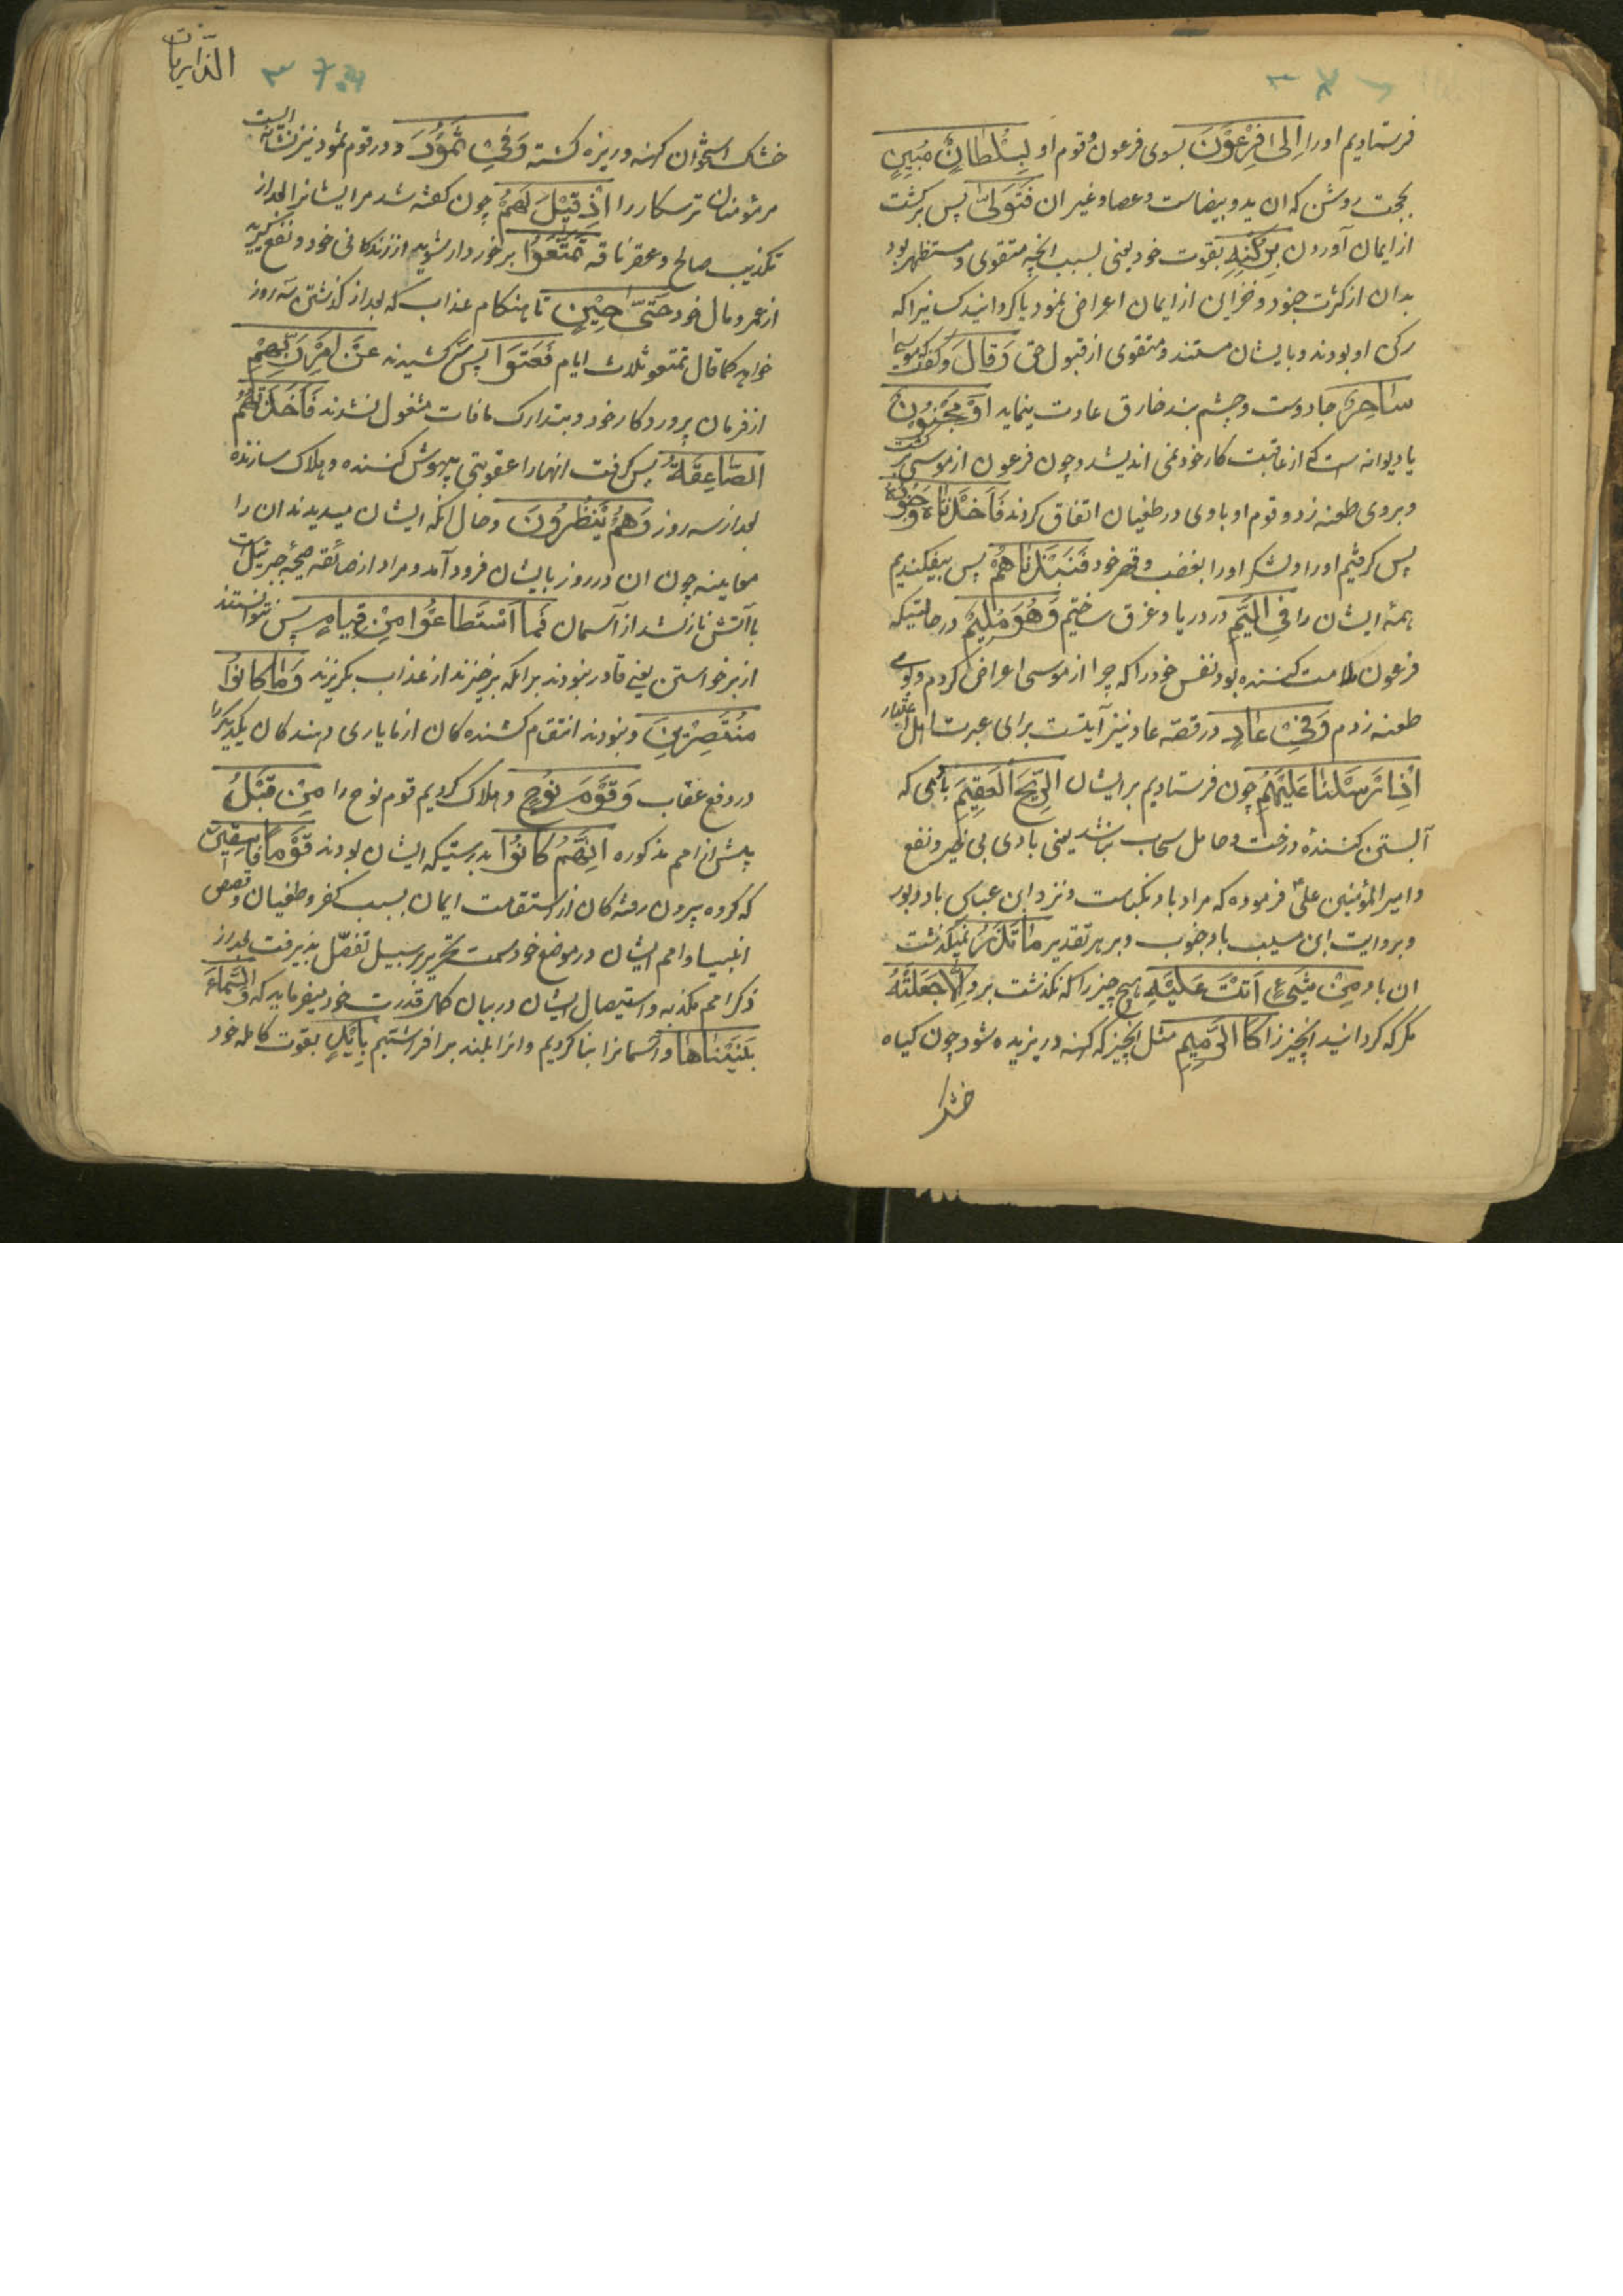 فرستادیم اورا اِلی فِرْعَوْنَ بسوی فرعون و قوم او بِسُلْطانٍ مُبِینٍ
بحجت روشن که ان ید و بیضاست و عصا و غیر ان فَتَوَلّی پس برکشت
از ایمان آوردن بِرُکْنِهِ بقوت خود یعنی بسبب انچه متقوی و مستظهر بود
بدان از کثرت جنود و خزاین از ایمان اعراض نمود یا کردانید کسانیرا که
رکن او بودند و بایشان مستند و متقوی از قبول حق وَ قالَ و کفت که موسی
ساحِرٌ جادوست و چشم بند خارق عادت مینماید اَوْ مَجْنُونٌ
یا دیوانه است که از عاقبت کار خود نمی اندیشد و چون فرعون از موسی بر کشت
و بروی طعنه زد و قوم او با وی در طغیان اتفاق کردند فَاَخَذْناهُ وَ جُنُودَهُ
پس کرفتیم اورا و لشکر اورا بغضب و قهر خود فَنَبَذْناهُمْ پس بیفکندیم
همهٔ ایشان را فِی الْیَمِّ در دریا و غرق ساختیم وَ هُوَ مُلِیمٌ در حالتیکه
فرعون ملامت کننده بود نفس خود را که چرا از موسی اعراض کردم و بروی
طعنه زدم وَ فِی عادٍ در قصه عاد نیز آیتست برای عبرت اهل اعتبار
اِذْ اَرْسَلْنا عَلَیْهِمُ چون فرستادیم بر ایشان الرِّیحَ الْعَقِیمَ بادی که
آبستن کنندهٔ درخت و حامل سحاب نباشد یعنی بادی بی خیر و نفع
و امیر المؤمنین علی فرموده که مراد باد نکباست و نزد ابن عباس باد دبور
و بروایت ابن مسیب باد جنوب و بر هر تقدیر ما تَذَرُ نمیکذاشت
ان باد مِنْ شَیْءٍ اَتَتْ عَلَیْهِ هیچ چیز را که بکذشت برو اِلّا جَعَلَتْهُ
مکر که کردانید انچیز را کَالرَّمِیمِ مثل انچیز که کهنه و ریزیده شود چون کیاه
خشک
الذاریات
خشک استخوان کهنه و ریزه کشته وَ فِی ثَمُودَ و در قوم ثمود نیز نشانه الیست
مر مؤمنان ترسکار را اِذْ قِیلَ لَهُمْ چون کفته شد مر ایشانرا بعد از
تکذیب صالح و عقر ناقه تَمَتَّعُوا برخوردار شوید از زندکانی خود و نفع کیرید
از عمر و مال خود حَتّی حِینٍ تا هنکام عذاب که بعد از کذشتن سه روز
خواهد کما قال تمتعو ثلاث ایام فَعَتَوْا پس سر کشیدند عَنْ اَمْرِ رَبِّهِمْ
از فرمان پروردکار خود و بتدارک مافات مشغول نشدند فَاَخَذَتْهُمُ
الصّاعِقَةُ پس کرفت انهارا عقوبتی بیهوش کننده و هلاک سازنده
بعد از سه روز وَ هُمْ یَنْظُرُونَ و حال انکه ایشان میدیدند ان را
معاینه چون ان در روز بایشان فرود آمد و مراد از صاعقه صیحهٔ جبرئیل است
با آتش نازل شد از آسمان فَمَا اسْتَطاعُوا مِنْ قِیامٍ پس نتوانستند
از برخواستن یعنی قادر نبودند بر انکه برخیزند از عذاب بکریزند وَ ما کانُوا
مُنْتَصِرِینَ و نبودند انتقام کشنده کان از ما یا یاری دهندکان یکدیکر را
در دفع عقاب وَ قَوْمَ نُوحٍ و هلاک کردیم قوم نوح را مِنْ قَبْلُ
پیش از امم مذکوره اِنَّهُمْ کانُوا بدرستیکه ایشان بودند قَوْماً فاسِقِینَ
که کروه بیرون رفته کان از استقامت ایمان بسبب کفر و طغیان و قصص
انبیا و امم ایشان در موضع خود سمت تحریر بر سبیل تفصّل پذیرفت بعد از
ذکر امم مکذبه و استیصال ایشان در بیان کمال قدرت خود میفرماید که وَ السَّماءَ
بَنَیْناها و آسمانرا بنا کردیم و انرا بلند بر افراشتیم بِاَیْدٍ بقوت کامله خود